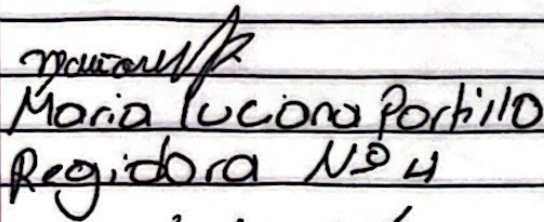 Maria Luciana Portillo
Regidora Nº 4